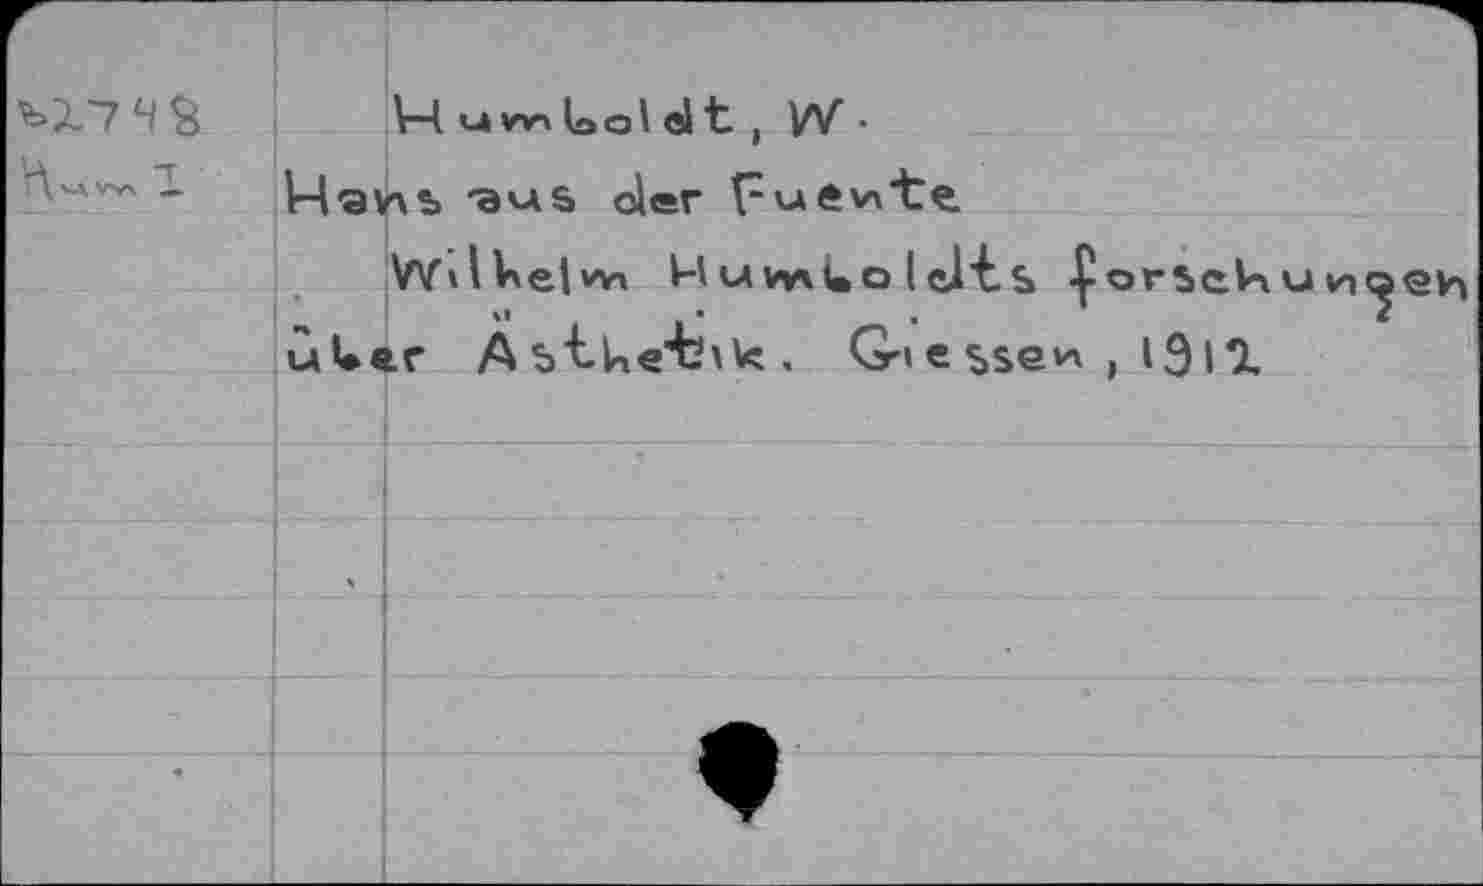 b2748
Hum 1
Humboldt, W.
Hans aus der Fuente
Wilhelm Humboldts Forschungen
über Ästhetik. Giessen, 1912